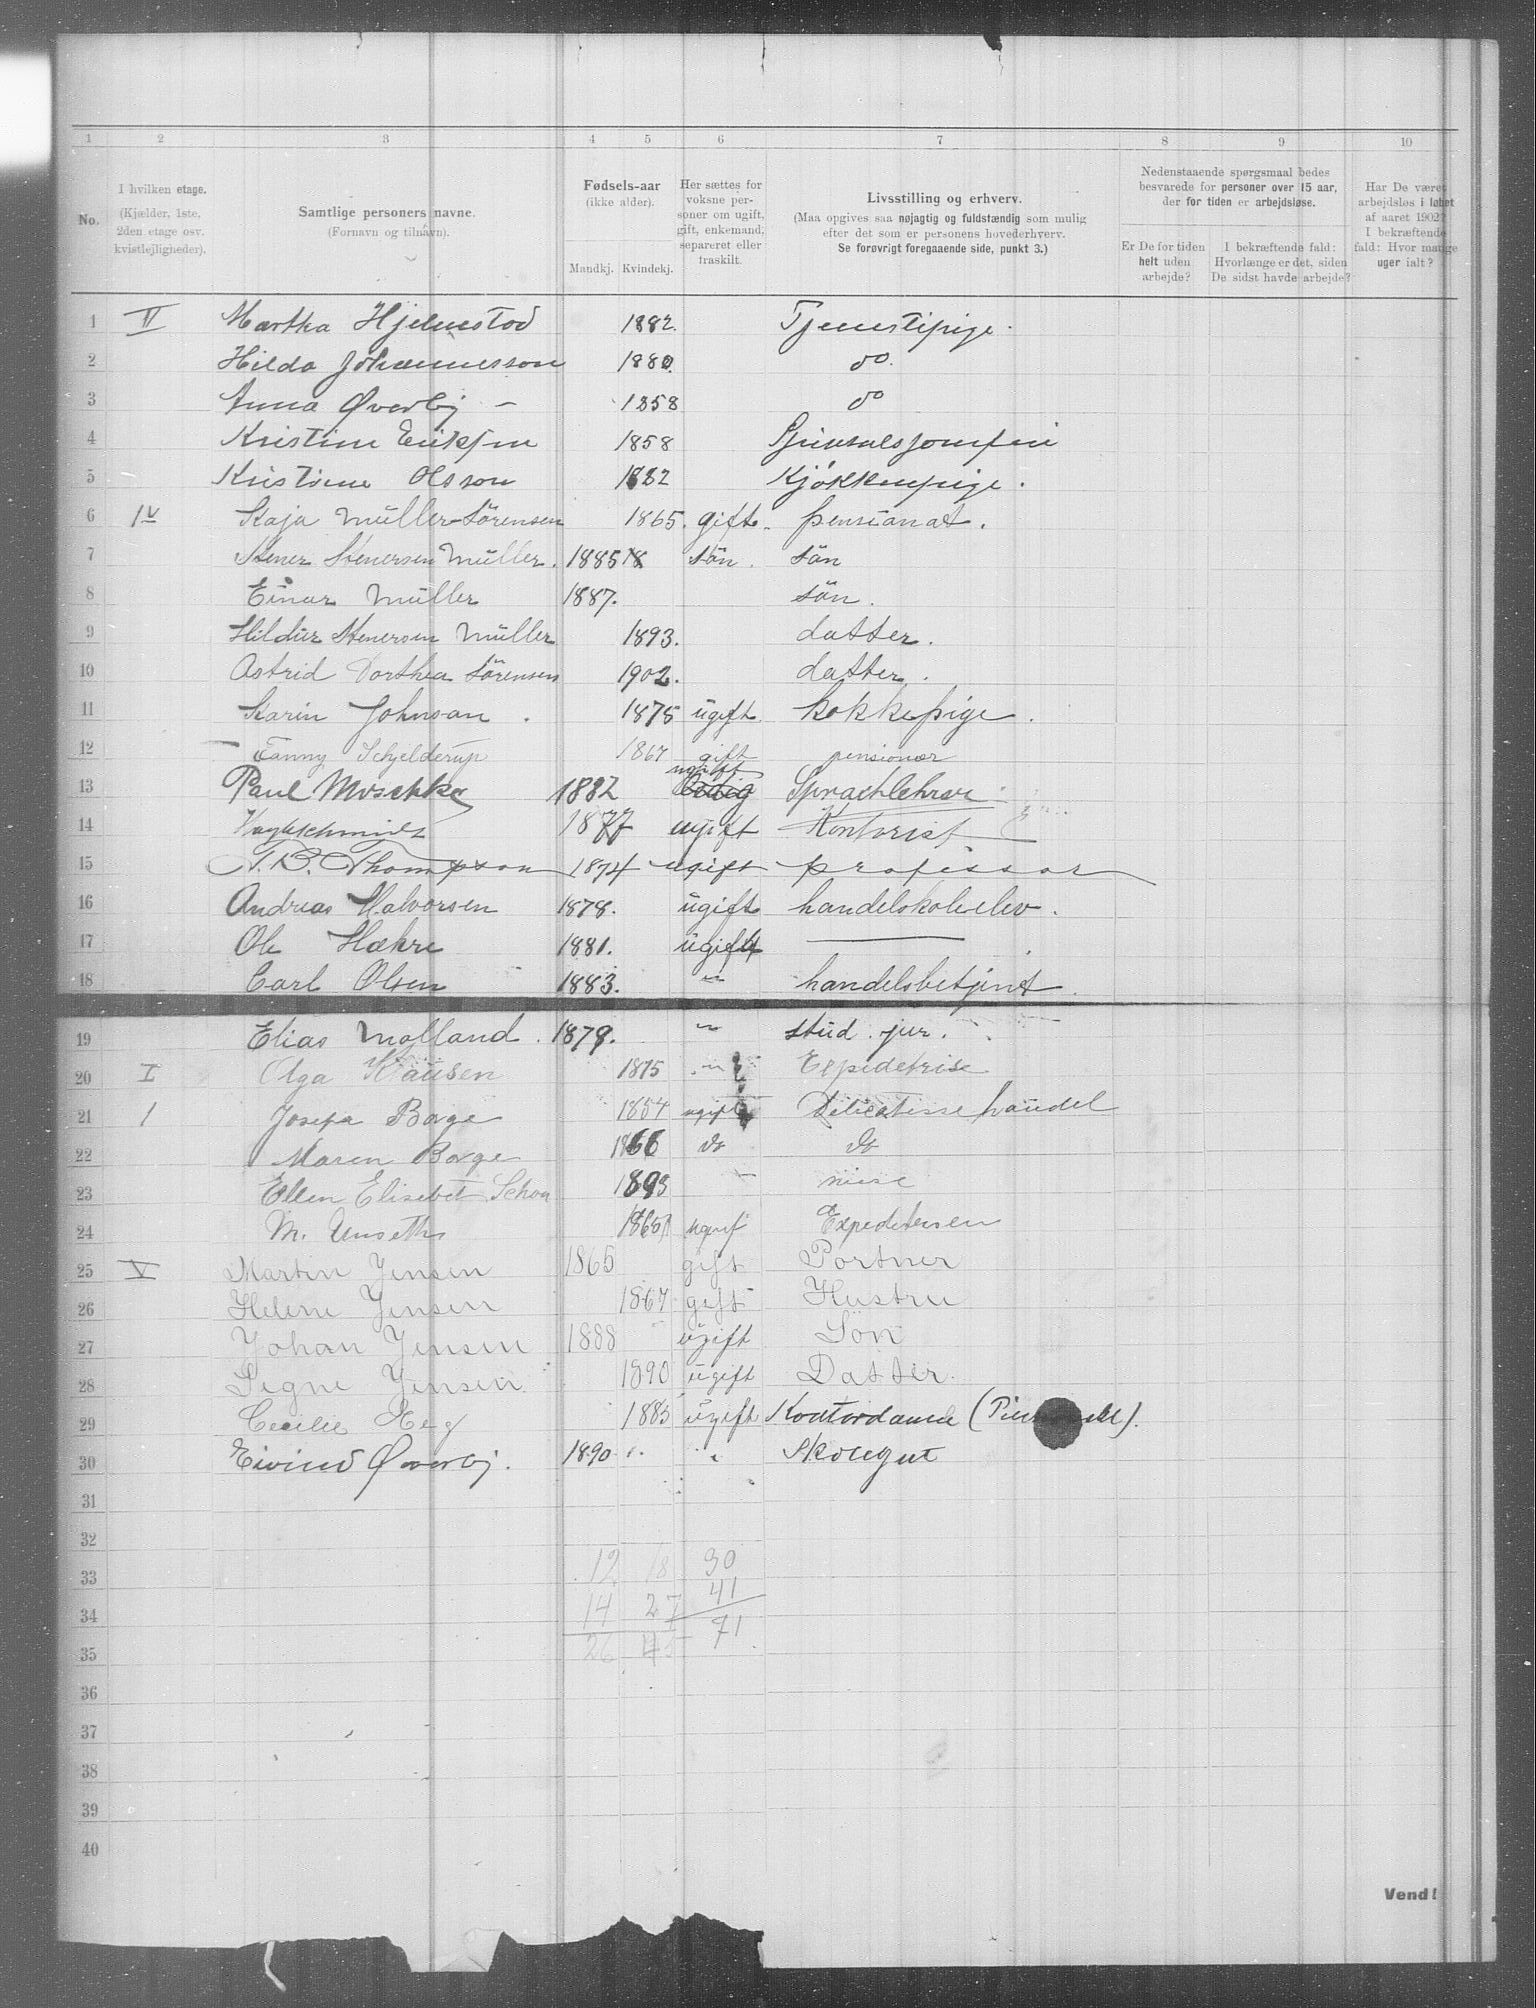 1 2 3 4 5 6 7 8 9 10
No.
I hvilken etage. (Kjælder, 1ste, 2den etage osv. kvistlejligheder).
Samtlige personers navne. (Fornavn og tilnavn).
Fødsels-aar (ikke alder). Mandkj. Kvindekj.
Her sættes for voksne personer om ugift, gift, enkemand, separeret eller fraskilt.
Livsstilling og erhverv. (Maa opgives saa nøjagtig og fuldstændig som mulig efter det som er personens hovederhverv. Se forøvrigt foregaaende side, punkt 3.)
Nedenstaaende spørgsmaal bedes besvarede for personer over 15 aar, der for tiden er arbejdsløse.
Er De for tiden helt uden arbejde?
I bekræftende fald: Hvorlænge er det, siden De sidst havde arbejde?
Har De været arbejdsløs i løbet af aaret 1902? I bekræftende fald: Hvor mange uger ialt?
1 Martha Hjelmstod 1882. Tjenestepige.
2 Hilda Johannesson 1880. do.
3 Anna Øverby - 1858 do
4 Kristine Eriksen 1858
5 Kristine Olsson 1882 Kjøkkenpige.
6 IV Kaja Müller-Sörensen 1865. gift. pensianat.
7 Stener Stenersen Müller. 1885 sön. sön
8 Einar Müller 1887. sön.
9 Hildur Stenersen Müller 1893. datter.
10 Astrid Dorthea Sörensen 1902. datter.
11 Karin Johnsan. 1875 ugift kokkepige.
12 Fanny Schjelderup 1867 gift pensionær
13 Paul Moschka 1882 ugift ledig Sprachlehrer
14 1877 ugift Kontorist
15 T. B. Thompson 1874 ugift professor
16 Andreas Halvorsen 1878. ugift handelskolelev.
17 Ole Hækre 1881. ugift
18 Carl Olsen 1883. " handelsbetjent.
19 Elias Molland. 1879. " stud. jur.
20 I Olga Klausen 1875 " Expeditrise
21 1 Josefa Borge 1854 ugift Delicatesse handel
22 Maren Borge 1866 do do
23 Ellen Elisebet Schou 1893 - niese
24 M. Unseth 1865 ugift Expeditrisen
25 V Martin Jensen 1865 gift Portner
26 Helene Jensen 1867 gift Hustru
27 Johan Jensen 1888 ugift Sön
28 Signe Jensen 1890 ugift Datter.
29 Cecilie Heg 1885 ugift Kontordame
30 Eivind Øverby. 1890 " Skolegut
31
32
33 12 18 30
34 14 27 41
35 26 45 71
36
37
38
39
40
Vend!